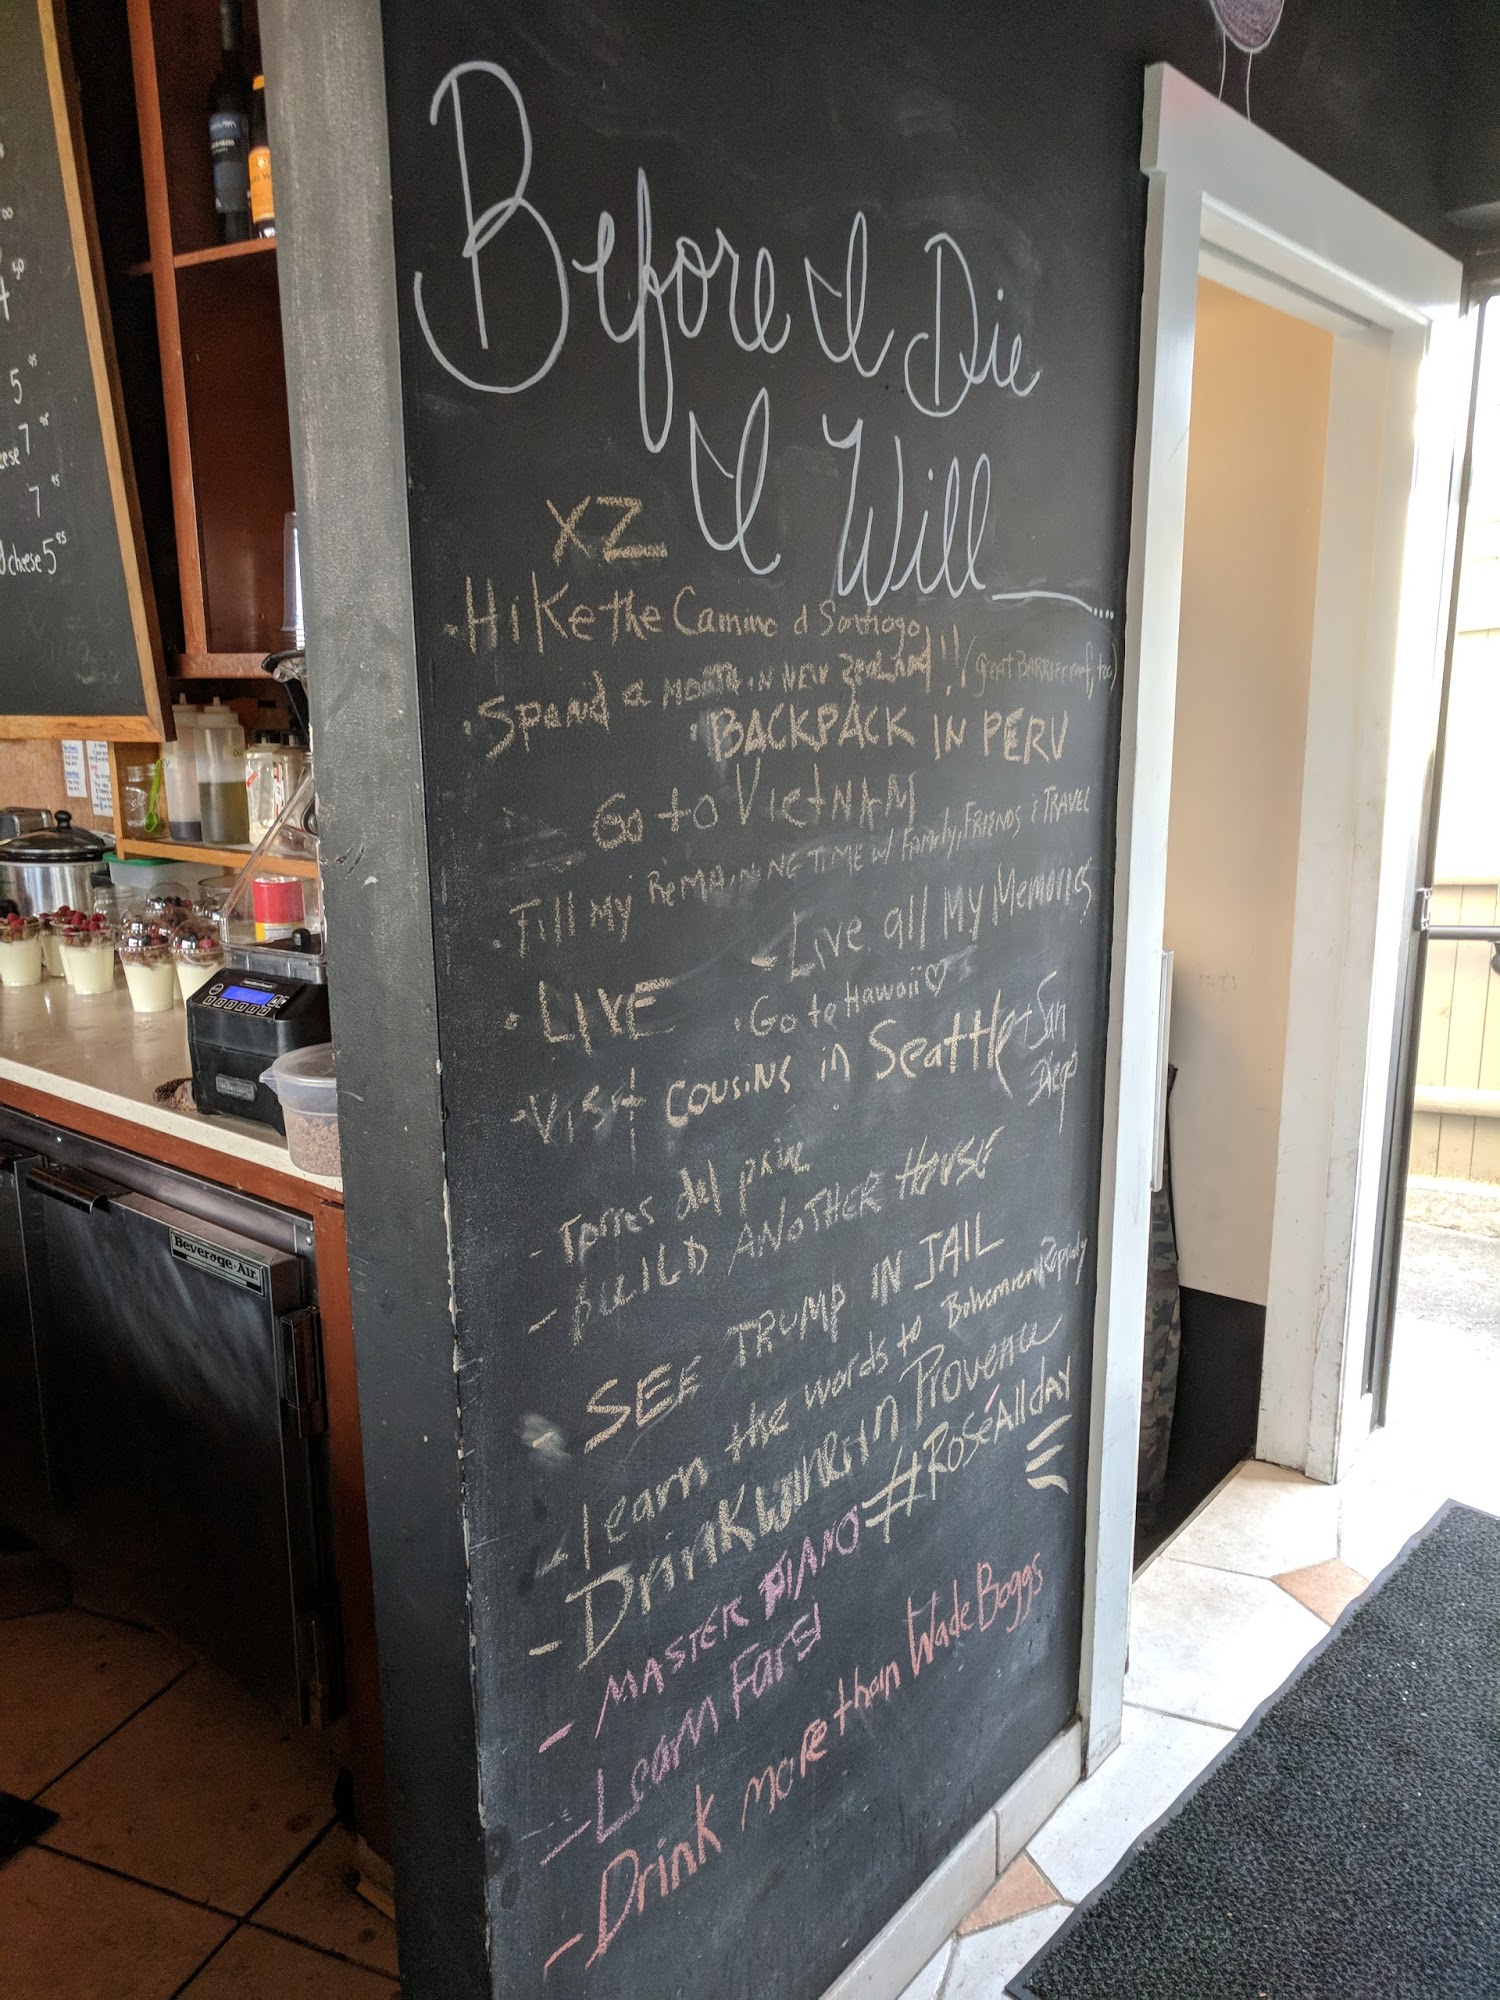 Before I Die
I Will
XZ
· Hike the Camino d Santiago
· Spend a month in New Zealand!! (great Barrier reef, too)
· BACKPACK IN PERU
Go to VietNAM
· Fill my REMAINING TIME w/ Family, FRIENDS & TRAVEL
- Live all My Memories
· LIVE
· Go to Hawaii ♡
- Visit cousins in Seattle + San Diego
- Torres del
- BUILD ANOTHER HOUSE
- SEE TRUMP IN JAIL
- learn the words to Bohemian Rapsody
- Drink wine in Provence
#RoséAllday
- MASTER PIANO
- Learn Farsi
- Drink more than Wade Boggs
5 95
cheese 7 95
7 95
cheese 5 95
Beverage-Air